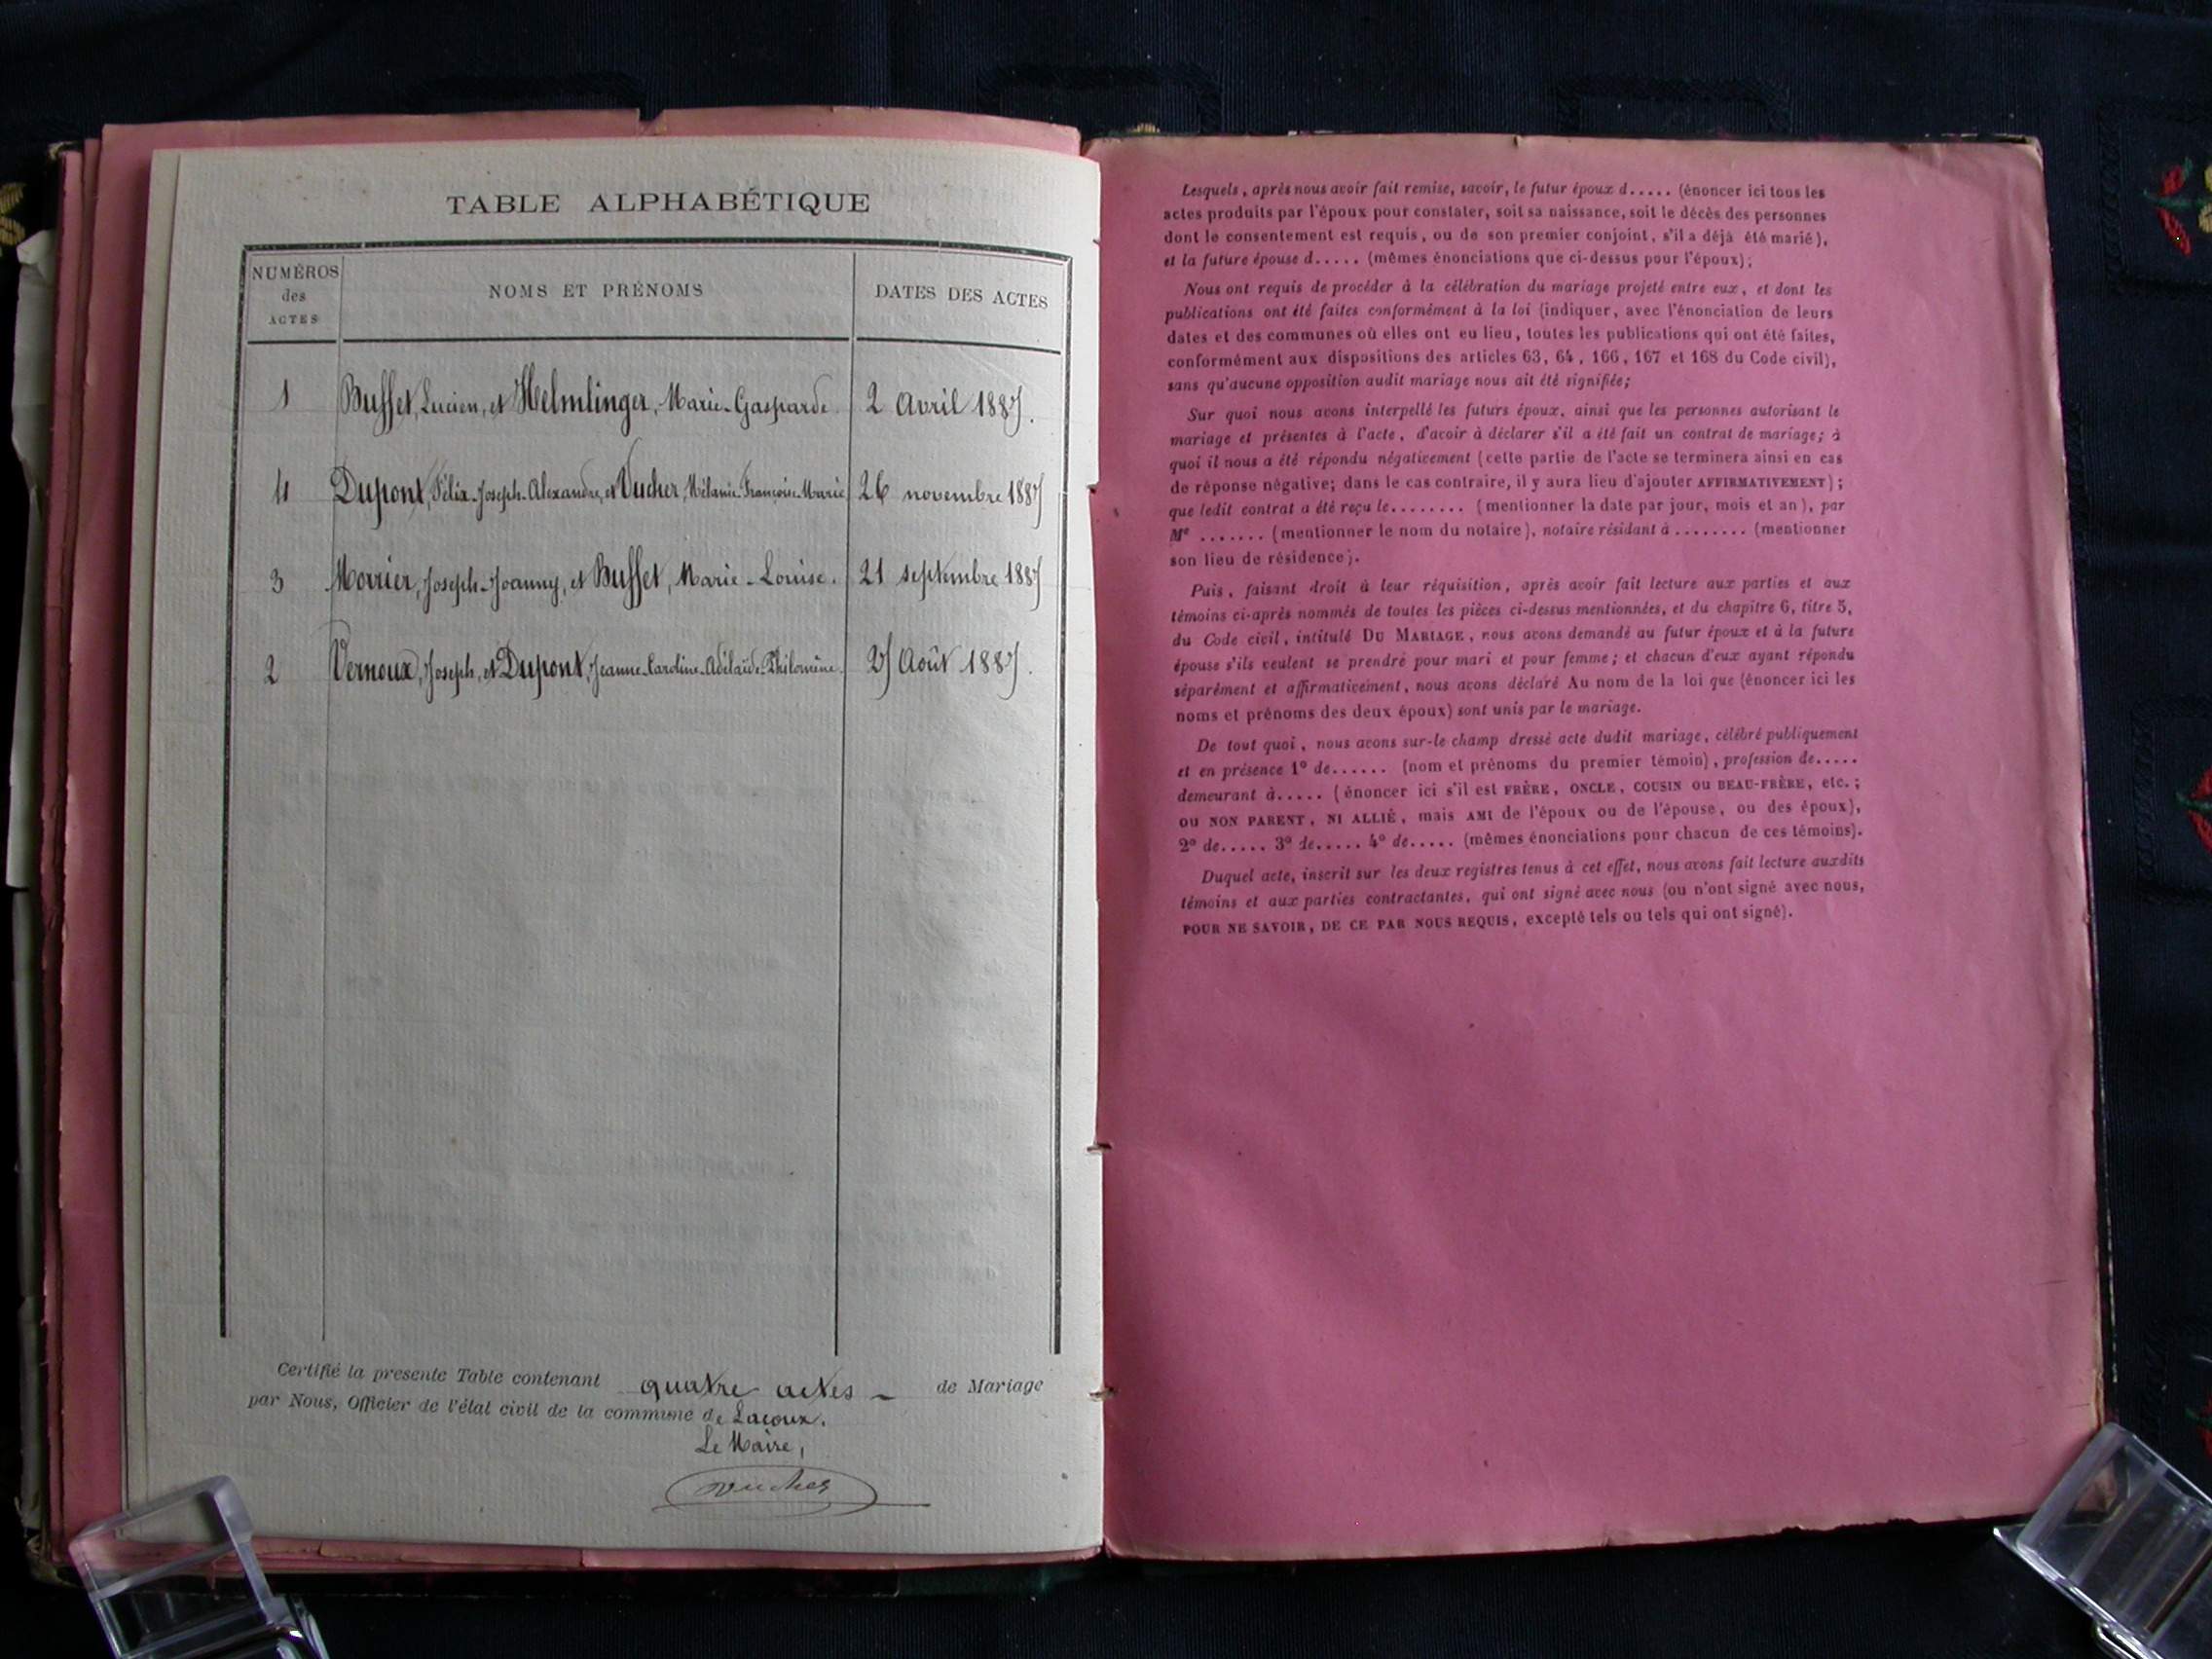 TABLE ALPHABÉTIQUE
NUMÉROS
des
ACTES
NOMS ET PRÉNOMS
DATES DES ACTES
1 Buffet, Lucien, et Helmlinger, Marie-Gasparde 2 Avril 1887.
4 Dupont, Félix-Joseph-Alexandre, et Vucher, Mélanie-Françoise-Marie 26 novembre 1887
3 Morrier, Joseph-Joanny, et Buffet, Marie-Louise. 21 septembre 1887
2 Vernoux, Joseph, et Dupont, Jeanne-Caroline-Adélaïde-Philomène. 27 Août 1887.
Certifié la presente Table contenant quatre actes - de Mariage
par Nous, Officier de l'état civil de la commune de Lacoux.
Le Maire,
Vucher
Lesquels, après nous avoir fait remise, savoir, le futur époux d..... (énoncer ici tous les
actes produits par l'époux pour constater, soit sa naissance, soit le décès des personnes
dont le consentement est requis, ou de son premier conjoint, s'il a déjà été marié),
et la future épouse d..... (mêmes énonciations que ci-dessus pour l'époux);
Nous ont requis de procéder à la célébration du mariage projeté entre eux, et dont les
publications ont été faites conformément à la loi (indiquer, avec l'énonciation de leurs
dates et des communes où elles ont eu lieu, toutes les publications qui ont été faites,
conformément aux dispositions des articles 63, 64, 166, 167 et 168 du Code civil),
sans qu'aucune opposition audit mariage nous ait été signifiée;
Sur quoi nous avons interpellé les futurs époux, ainsi que les personnes autorisant le
mariage et présentes à l'acte, d'avoir à déclarer s'il a été fait un contrat de mariage; à
quoi il nous a été répondu négativement (cette partie de l'acte se terminera ainsi en cas
de réponse négative; dans le cas contraire, il y aura lieu d'ajouter AFFIRMATIVEMENT);
que ledit contrat a été reçu le........ (mentionner la date par jour, mois et an), par
Me ....... (mentionner le nom du notaire), notaire résidant à ........ (mentionner
son lieu de résidence).
Puis, faisant droit à leur réquisition, après avoir fait lecture aux parties et aux
témoins ci-après nommés de toutes les pièces ci-dessus mentionnées, et du chapitre 6, titre 5,
du Code civil, intitulé DU MARIAGE, nous avons demandé au futur époux et à la future
épouse s'ils veulent se prendre pour mari et pour femme; et chacun d'eux ayant répondu
séparément et affirmativement, nous avons déclaré Au nom de la loi que (énoncer ici les
noms et prénoms des deux époux) sont unis par le mariage.
De tout quoi, nous avons sur-le champ dressé acte dudit mariage, célébré publiquement
et en présence 1º de...... (nom et prénoms du premier témoin), profession de.....
demeurant à..... (énoncer ici s'il est FRÈRE, ONCLE, COUSIN OU BEAU-FRÈRE, etc.;
OU NON PARENT, NI ALLIÉ, mais AMI de l'époux ou de l'épouse, ou des époux),
2º de..... 3º de..... 4º de..... (mêmes énonciations pour chacun de ces témoins).
Duquel acte, inscrit sur les deux registres tenus à cet effet, nous avons fait lecture auxdits
témoins et aux parties contractantes, qui ont signé avec nous (ou n'ont signé avec nous,
POUR NE SAVOIR, DE CE PAR NOUS REQUIS, excepté tels ou tels qui ont signé).